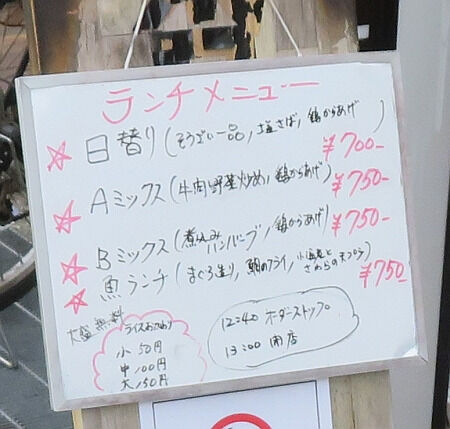 ランチメニュー
日替り(そうざい一品,塩さば,鶏からあげ) ¥700-
Aミックス(牛肉野菜炒め,鶏からあげ) ¥750-
Bミックス(煮込みハンバーグ,鶏からあげ) ¥750-
魚ランチ(まぐろ造り,鯛のフライ,小海老とさわらの天プラ) ¥750-
大盛無料
ライスおかわり
小50円
中100円
大150円
12:40 オーダーストップ
13:00 閉店